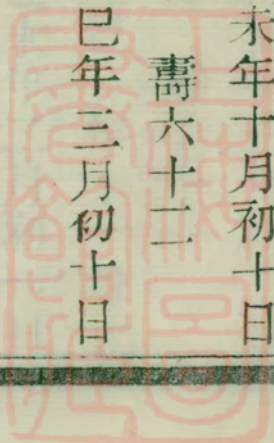 未年十月初十日
壽六十二
巳年三月初十日